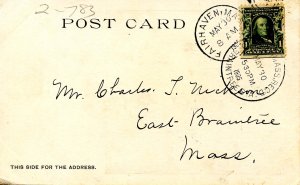 2-783
POST CARD
FAIRHAVEN, M
MAY 10
8 AM
MAY 10
5-30PM
Mr. Charles T.
East Braintree
Mass.
THIS SIDE FOR THE ADDRESS.